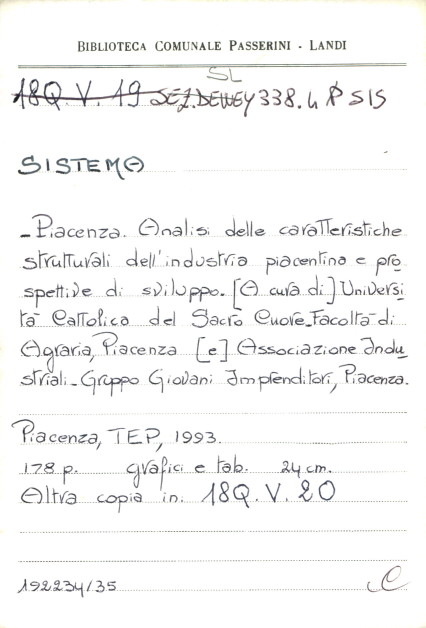 BIBLIOTECA COMUNALE PASSERINI - LANDI
SL
18Q. V. 19 SEZ. DEWEY 338.4 P SIS
SISTEMA
-Piacenza. Analisi delle caratteristiche
strutturali dell'industria piacentina e pro
spettive di sviluppo. [A cura di] Universi
tà Cattolica del Sacro Cuore_Facoltà di
Agraria, Piacenza [e] Associazione Indu
striali_Gruppo Giovani Imprenditori, Piacenza.
Piacenza, TEP, 1993.
178 p. grafici e tab. 24 cm.
Altra copia in: 18Q. V. 20
192234/35
C